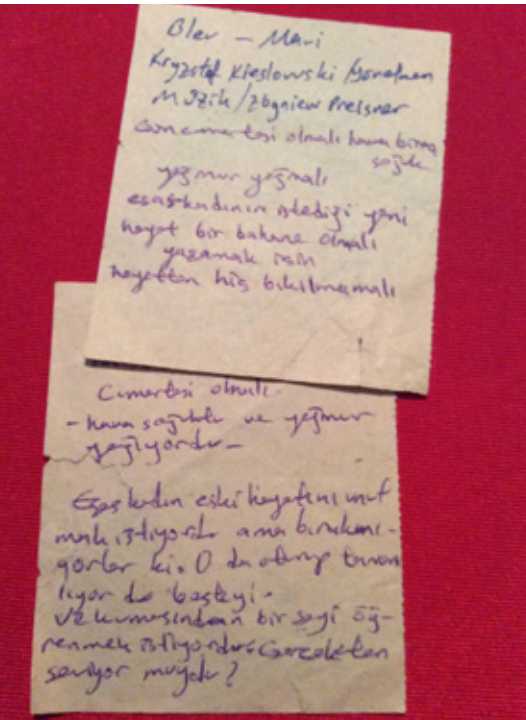 Bleu – Mavi
Kryzstof Kieslowski / Yönetmen
Müzik / Zbgniew Preisner
Gün cumartesi olmalı hava biraz
soğuk
yağmur yağmalı
esas kadının istediği yeni
hayat bir bahane olmalı
yaşamak için
hayattan hiç bıkılmamalı
Cumartesi olmalı
- hava soğuktu ve yağmur
yağıyordu -
Esas kadın eski hayatını unut
mak istiyordu ama bırakmı-
yorlar ki. O da oturup tamam
lıyor du besteyi.
Ve kumasından bir şeyi öğ-
renmek istiyordu. Gerçekten
seviyor muydu?